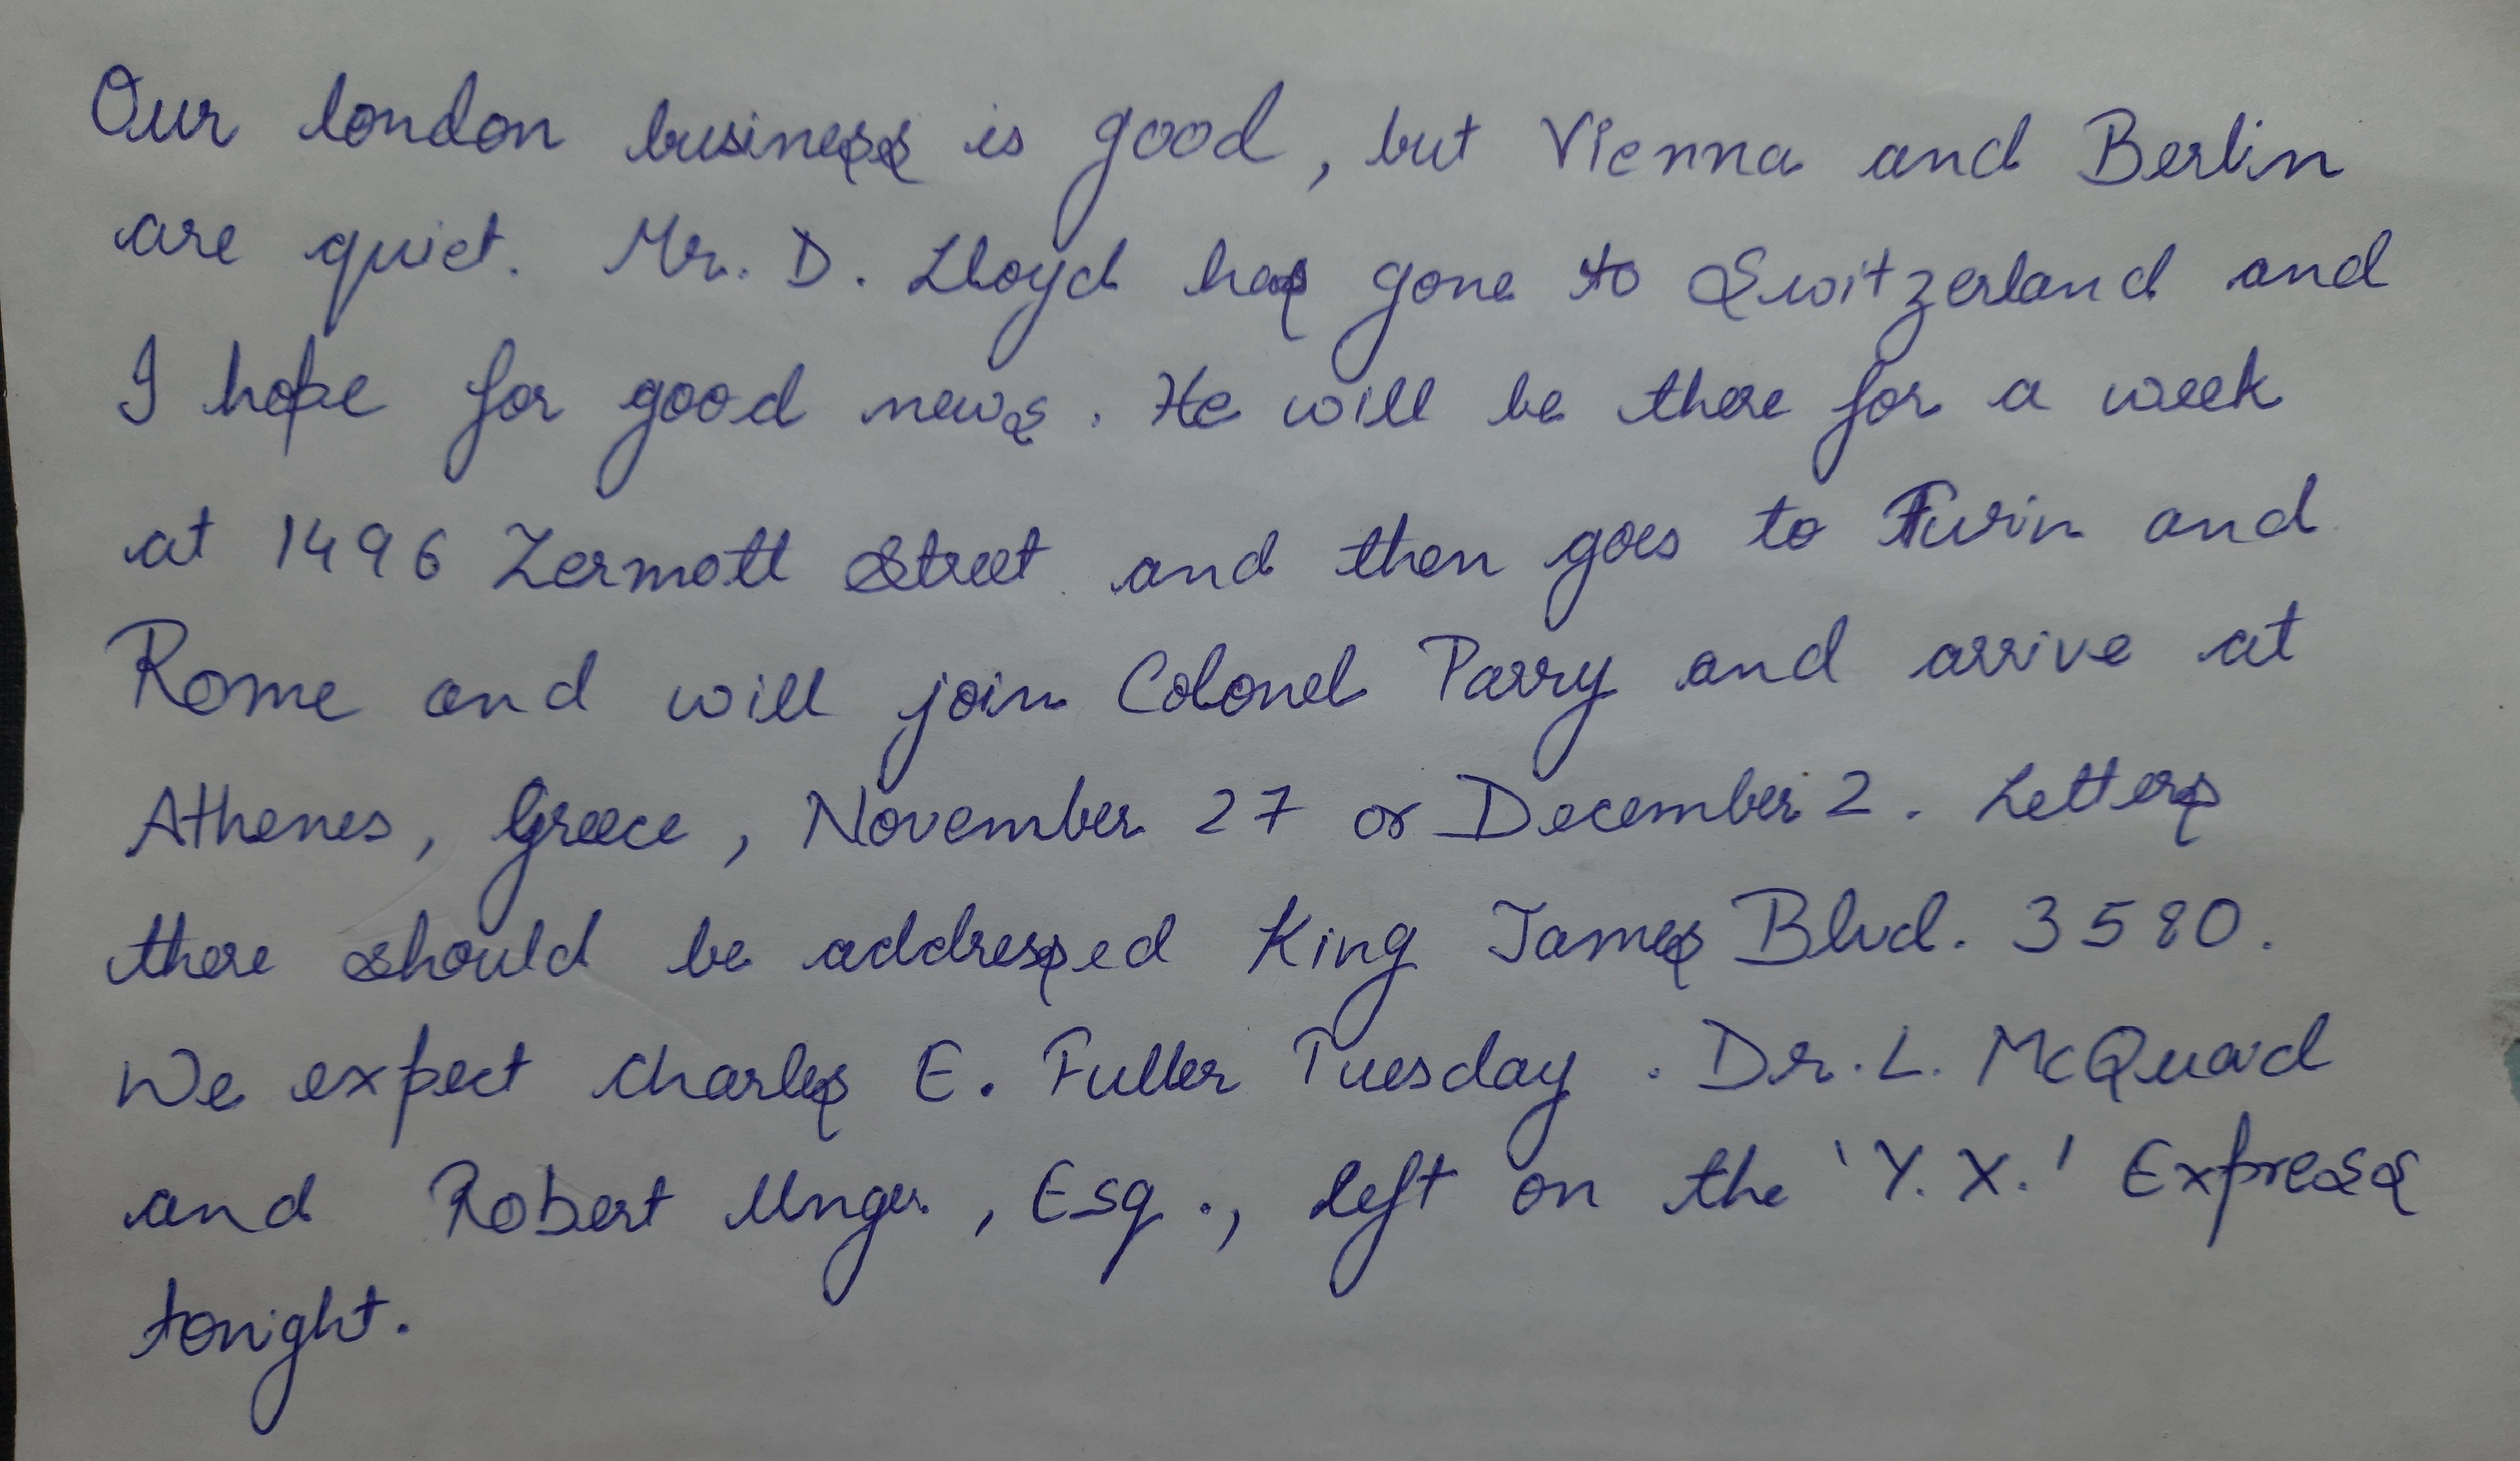 Our london business is good, but Vienna and Berlin
are quiet. Mr. D. Lloyd has gone to Switzerland and
I hope for good news. He will be there for a week
at 1496 Zermott Street and then goes to Turin and
Rome and will join Colonel Parry and arrive at
Athenes, Greece, November 27 or December 2. Letters
there should be addressed King James Blvd. 3580.
We expect Charles E. Fuller Tuesday. Dr. L. McQuaid
and Robert Unger, Esq., left on the 'Y.X.' Express
tonight.